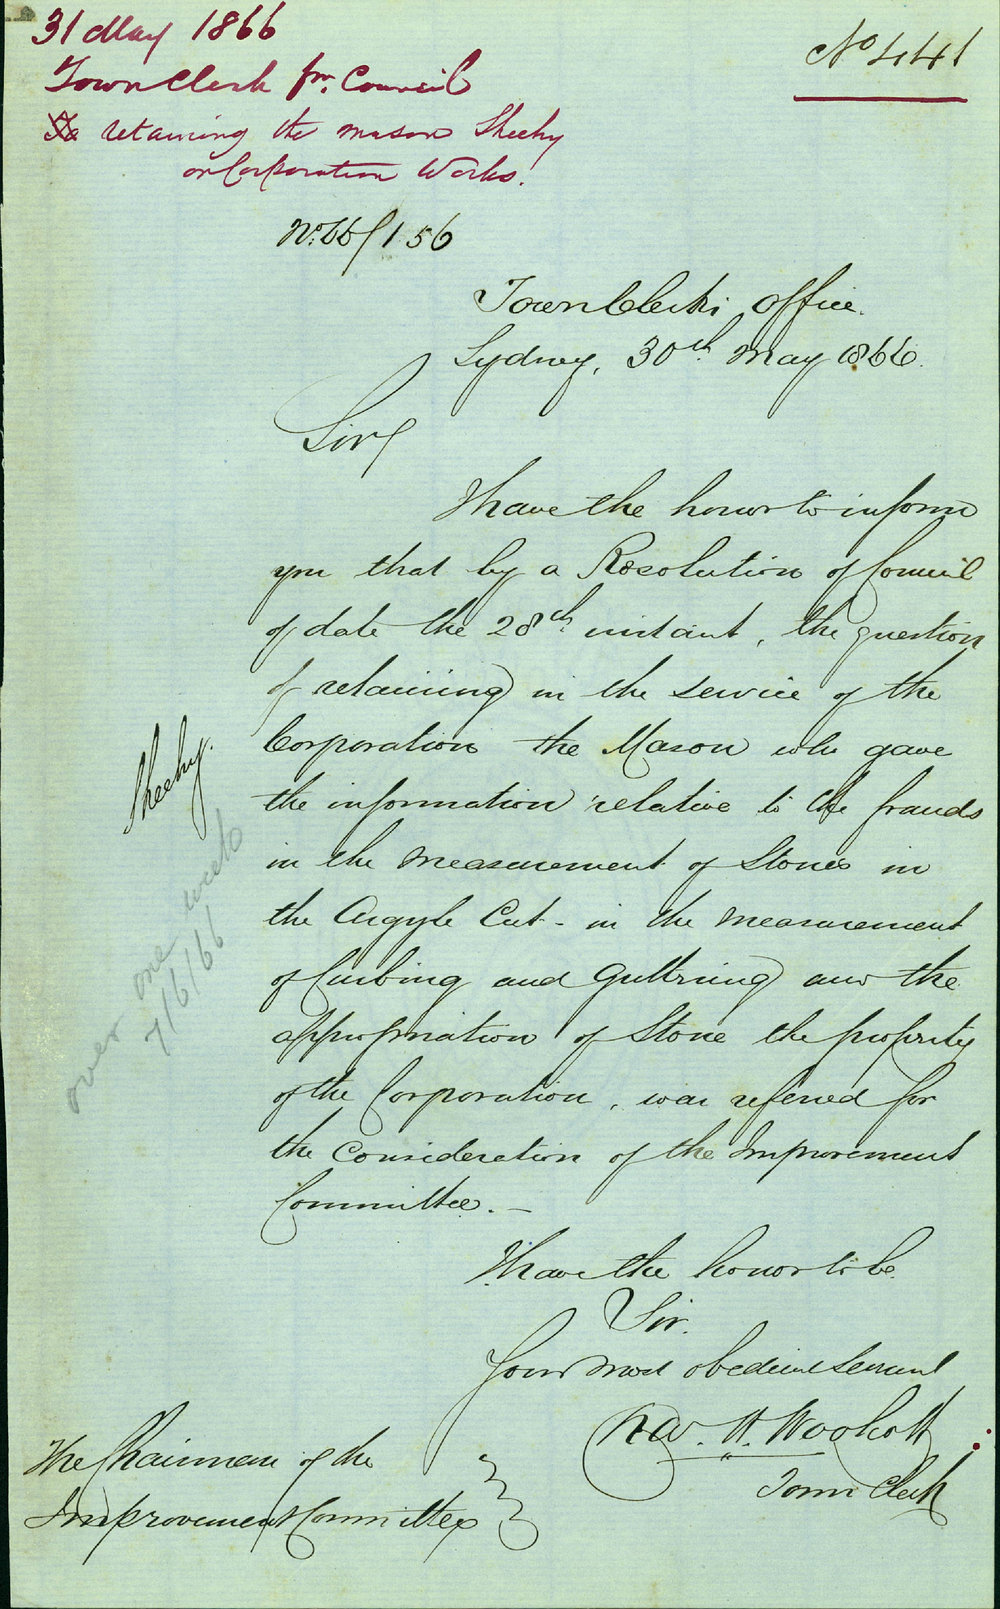 31 May 1866
No 441
Town Clerk fm. Council
Re retaining the mason Sheehy
on Corporation Works.
No. 66/156
Town Clerk's Office.
Sydney, 30th May 1866.
Sir,
I have the honor to inform
you that by a Resolution of Council
of date the 28th instant, the question
of retaining in the service of the
Corporation the Mason who gave
the information relative to the frauds
in the measurement of Stones in
the Argyle Cut - in the measurement
of Curbing and Guttering and the
appropriation of Stone the property
of the Corporation, was referred for
the consideration of the Improvement
Committee. -
Sheehy.
over one week
7/6/66
I have the honor to be.
Sir.
Your most obedient Servant
Chas. H. Woolcott
Town Clerk
The Chairman of the
Improvement Committee